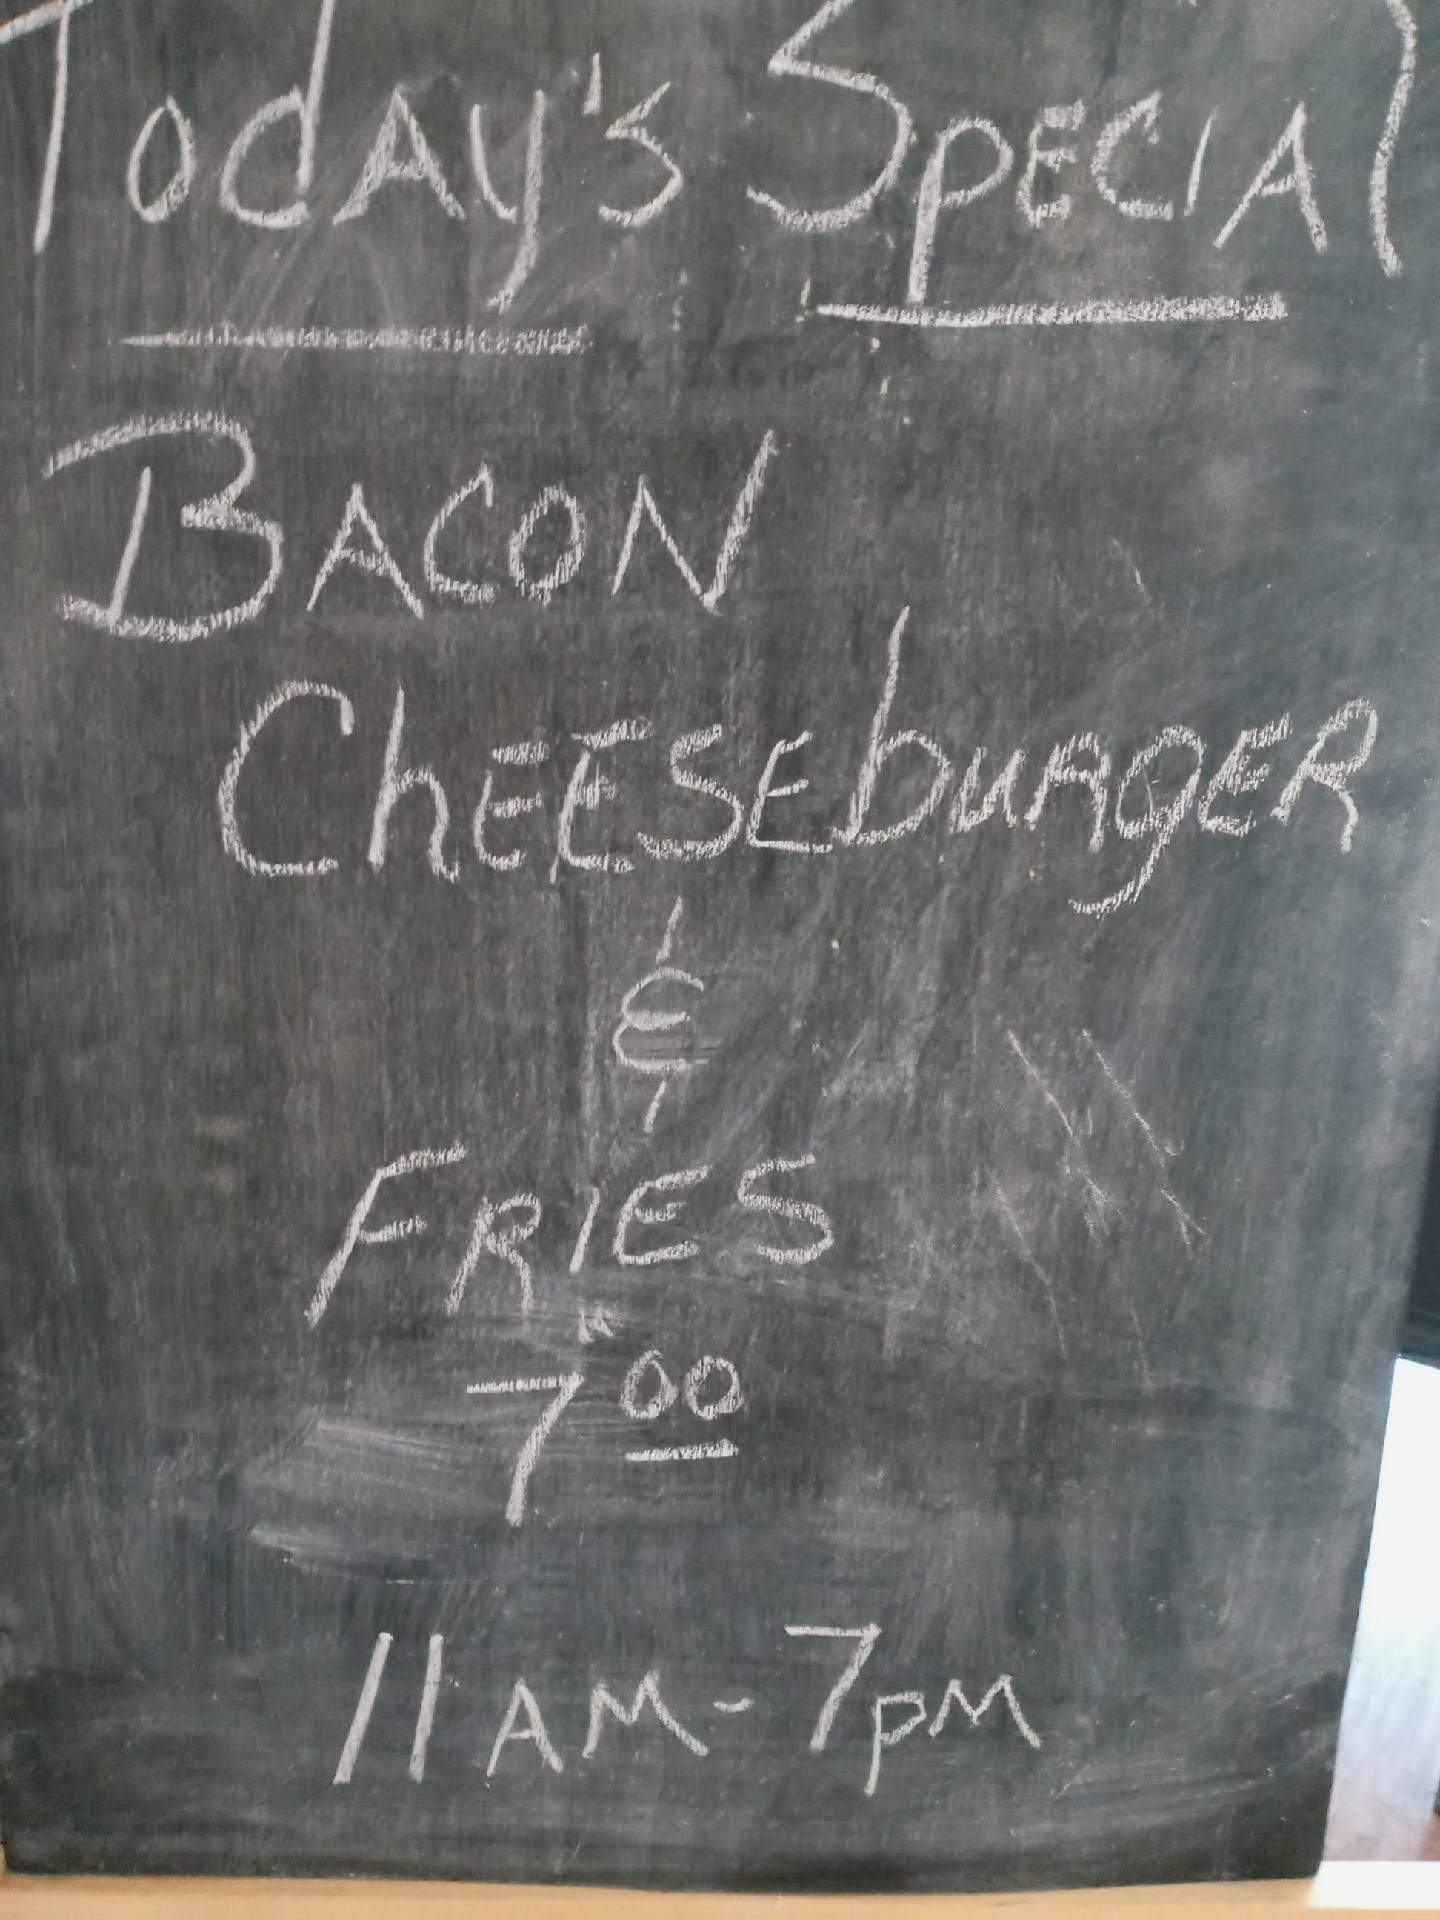 Today's Special
Bacon
Cheeseburger
&
Fries
7 00
11 AM - 7 PM